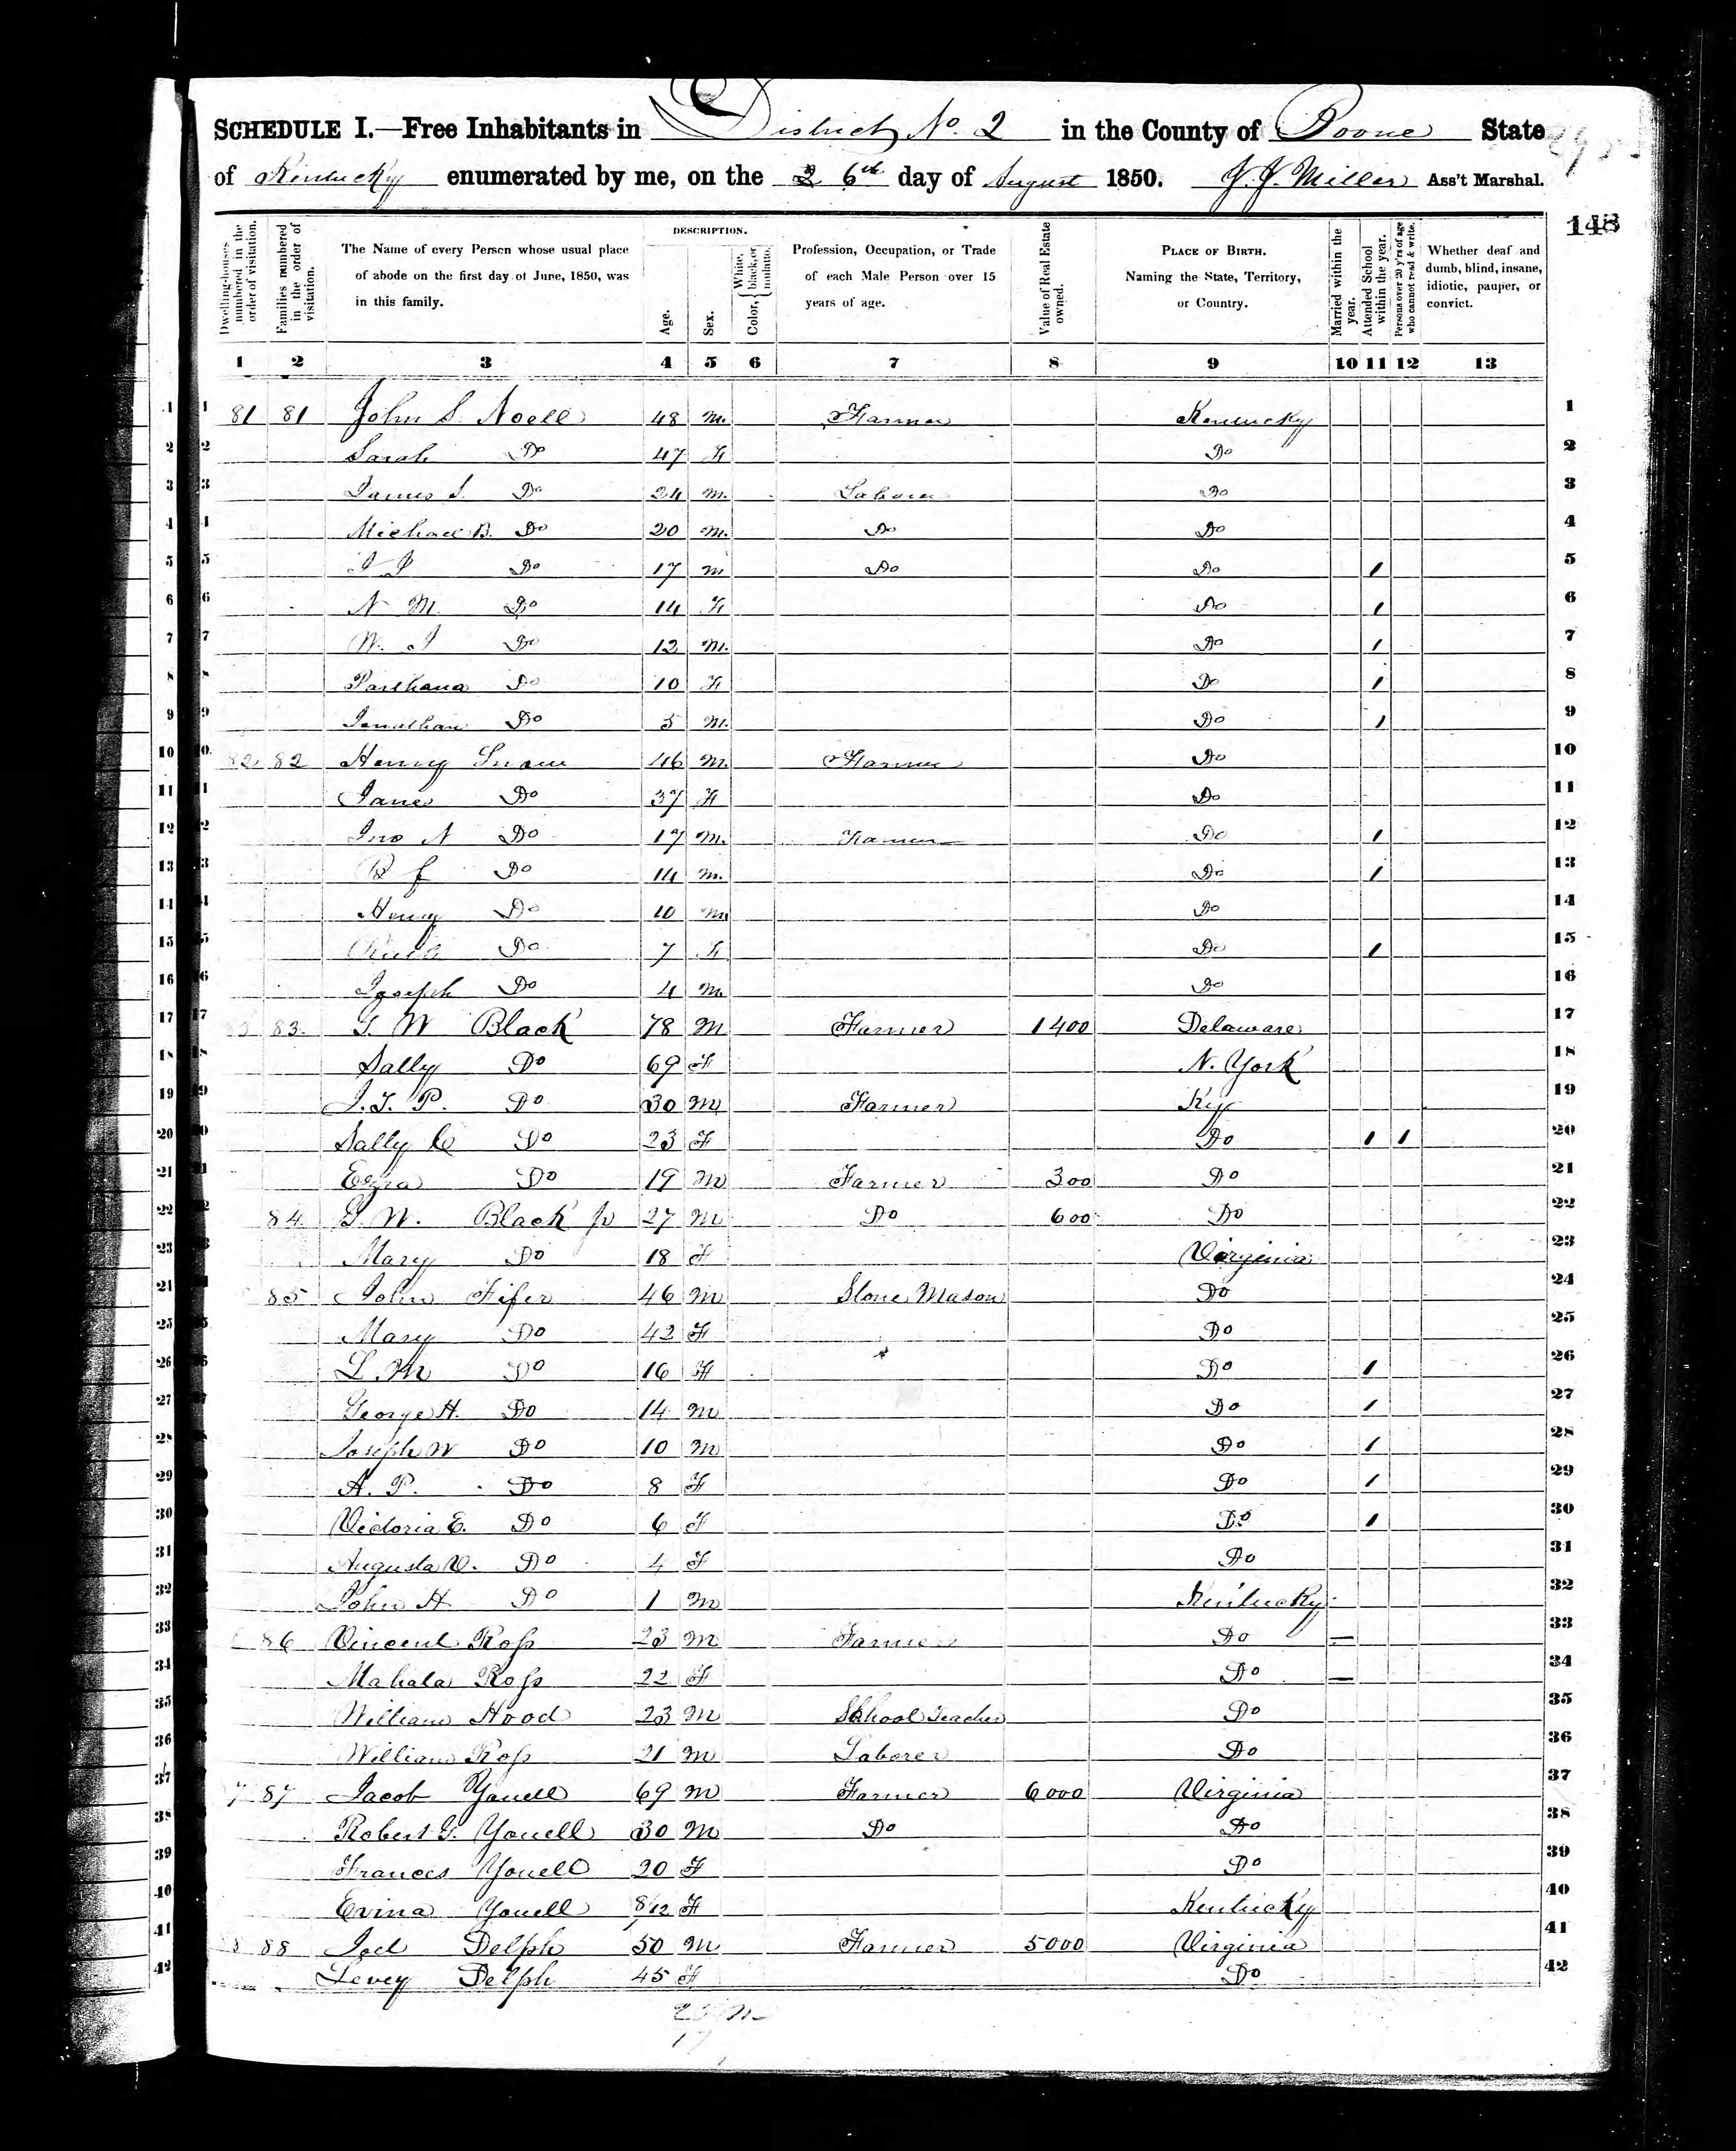 SCHEDULE I.—Free Inhabitants in District No. 2 in the County of Boone State
of Kentucky enumerated by me, on the 26th day of August 1850. J. J. Miller Ass't Marshal.
148
Dwelling-houses numbered in the order of visitation.
Families numbered in the order of visitation.
The Name of every Person whose usual place of abode on the first day of June, 1850, was in this family.
DESCRIPTION.
Age.
Sex.
Color, { White, black, or mulatto.
Profession, Occupation, or Trade of each Male Person over 15 years of age.
Value of Real Estate owned.
PLACE OF BIRTH. Naming the State, Territory, or Country.
Married within the year.
Attended School within the year.
Persons over 20 y'rs of age who cannot read & write.
Whether deaf and dumb, blind, insane, idiotic, pauper, or convict.
1 2 3 4 5 6 7 8 9 10 11 12 13
1 81 81 John S. Noell 48 M. Farmer Kentucky 1
2 Sarah Do 47 F Do 2
3 James S. Do 24 M. Laborer Do 3
4 Michael B. Do 20 M. Do Do 4
5 Do 17 M Do Do 1 5
6 N M. Do 14 F Do 1 6
7 W. J Do 12 M. Do 1 7
8 Parthana Do 10 F Do 1 8
9 Jonathan Do 5 M. Do 1 9
10 82 82 Henry Snow 46 M. Farmer Do 10
11 Jane Do 37 F Do 11
12 Jno N Do 17 M. Farmer Do 1 12
13 B f Do 14 M. Do 1 13
14 Henry Do 10 M Do 14
15 Do 7 F Do 1 15
16 Joseph Do 4 M. Do 16
17 83. G. W Black 78 M Farmer 1400 Delaware 17
18 Sally Do 69 F N. York 18
19 J. T. P. Do 30 M Farmer Ky 19
20 Sally C Do 23 F Do 1 1 20
21 Ezra Do 19 M Farmer 300 Do 21
22 84. G. W. Black jr 27 M Do 600 Do 22
23 Mary Do 18 F Virginia 23
24 85 John Fifer 46 M Stone Mason Do 24
25 Mary Do 42 F Do 25
26 L. M Do 16 F Do 1 26
27 George H. Do 14 M Do 1 27
28 Joseph W Do 10 M Do 1 28
29 A. P. Do 8 F Do 1 29
30 Victoria E. Do 6 F Do 1 30
31 Augusta V. Do 4 F Do 31
32 John H Do 1 M Kentucky 32
33 86 Vincent Ross 23 M Farmer Do — 33
34 Mahala Ross 22 F Do — 34
35 William Hood 23 M School Teacher Do 35
36 William Ross 21 M Laborer Do 36
37 7 87 Jacob Youell 69 M Farmer 6000 Virginia 37
38 Robert G. Youell 30 M Do Do 38
39 Frances Youell 20 F Do 39
40 Evina Youell 8/12 F Kentucky 40
41 88 88 Joel Delph 50 M Farmer 5000 Virginia 41
42 Levey Delph 45 F Do 42
25 M
17